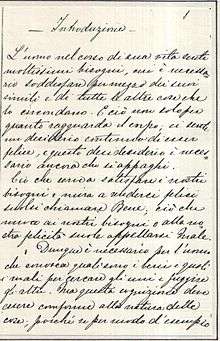 1
— Introduzione —
L'uomo nel corso di sua vita sente
moltissimi bisogni, cui è necessa
rio soddisfare per mezzo dei suoi
simili e di tutte le altre cose che
lo circondano. E ciò non solo per
quanto riguarda il corpo, ci sente
un desiderio continuo di esser
felice, e questo desiderio è neces
sario ancora che si appaghi.
Ciò che serve a saltisfare i nostri
bisogni, e mira a vederci felici
suolsi chiamare Bene, ciò che
nuoce ai nostri bisogni, o alla no
stra felicità suolsi appellarsi Male.
Dunque è necessario per l'uomo
che conosca quali sono i beni e quali
i mali per cercare gli uni e fuggire
gli altri. Ma questa cognizione deve
essere conforme alla natura delle
cose, poichè se per modo d'esempio